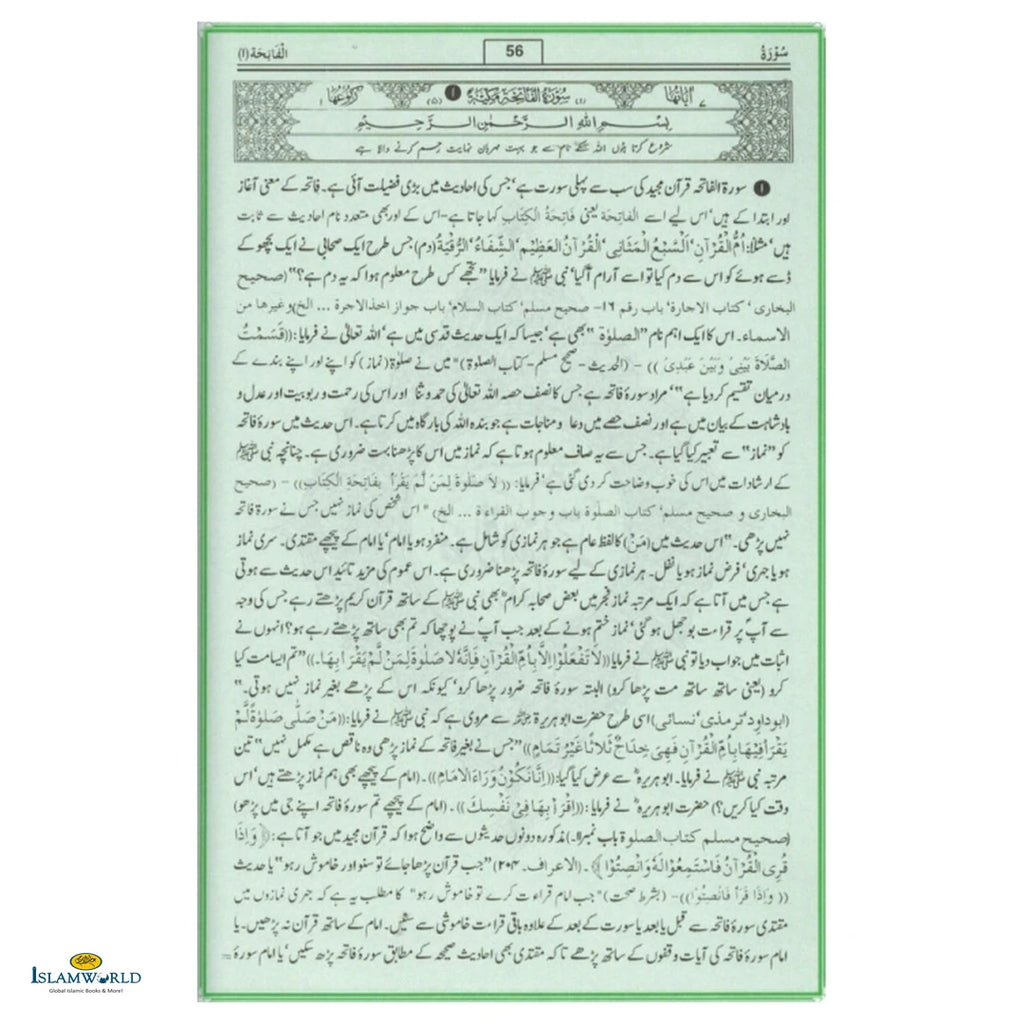 سُوْرَةُ
56
الْفَاتِحَة (۱)
اٰیَاتُهَا ۷
(۱) سُوْرَةُ الْفَاتِحَةِ مَكِّيَّةٌ ۱ (۵)
رُكُوْعُهَا ۱
بِسْمِ اللّٰهِ الرَّحْمٰنِ الرَّحِيْمِ
شروع کرتا ہوں اللہ کے نام سے جو بہت مہربان نہایت رحم کرنے والا ہے
۱ سورۃ الفاتحہ قرآن مجید کی سب سے پہلی سورت ہے' جس کی احادیث میں بڑی فضیلت آئی ہے۔ فاتحہ کے معنی آغاز
اور ابتدا کے ہیں' اس لیے اسے الفاتحة یعنی فَاتِحَةُ الْكِتَابِ کہا جاتا ہے- اس کے اور بھی متعدد نام احادیث سے ثابت
ہیں' مثلاً: اُمُّ الْقُرْآنِ' اَلسَّبْعُ الْمَثَانِي' الْقُرْآنُ الْعَظِيْم' الشِّفَاءُ' الرُّقْيَةُ (دم) جس طرح ایک صحابی نے ایک بچھو کے
ڈسے ہوئے کو اس سے دم کیا تو اسے آرام آگیا' نبی ﷺ نے فرمایا ”تجھے کس طرح معلوم ہوا کہ یہ دم ہے؟“ (صحيح
البخاري' كتاب الاجارة' باب رقم ۱۶- صحيح مسلم' كتاب السلام' باب جواز اخذ الاجرة ... الخ) وغيرها من
الاسماء۔ اس کا ایک اہم نام ”الصلوٰة“ بھی ہے' جیسا کہ ایک حدیث قدسی میں ہے' اللہ تعالیٰ نے فرمایا: ((قَسَمْتُ
الصَّلَاةَ بَيْنِي وَبَيْنَ عَبْدِي)) - (الحدیث - صحیح مسلم- کتاب الصلوة) ”میں نے صلوٰة (نماز) کو اپنے اور اپنے بندے کے
درمیان تقسیم کر دیا ہے“' مراد سورۂ فاتحہ ہے جس کا نصف حصہ اللہ تعالیٰ کی حمد و ثنا اور اس کی رحمت و ربوبیت اور عدل و
بادشاہت کے بیان میں ہے اور نصف حصے میں دعا و مناجات ہے جو بندہ اللہ کی بارگاہ میں کرتا ہے۔ اس حدیث میں سورۂ فاتحہ
کو ”نماز“ سے تعبیر کیا گیا ہے۔ جس سے یہ صاف معلوم ہوتا ہے کہ نماز میں اس کا پڑھنا بہت ضروری ہے۔ چنانچہ نبی ﷺ
کے ارشادات میں اس کی خوب وضاحت کر دی گئی ہے' فرمایا: ((لَا صَلٰوةَ لِمَنْ لَمْ يَقْرَأْ بِفَاتِحَةِ الْكِتَابِ)) - (صحيح
البخاري و صحيح مسلم' كتاب الصلوة باب وجوب القراءة ... الخ) ”اس شخص کی نماز نہیں جس نے سورۂ فاتحہ
نہیں پڑھی۔“ اس حدیث میں (مَنْ) کا لفظ عام ہے جو ہر نمازی کو شامل ہے۔ منفرد ہو یا امام' یا امام کے پیچھے مقتدی۔ سری نماز
ہو یا جہری' فرض نماز ہو یا نفل۔ ہر نمازی کے لیے سورۂ فاتحہ پڑھنا ضروری ہے۔ اس عموم کی مزید تائید اس حدیث سے ہوتی
ہے جس میں آتا ہے کہ ایک مرتبہ نماز فجر میں بعض صحابہ کرام بھی نبی ﷺ کے ساتھ قرآن کریم پڑھتے رہے جس کی وجہ
سے آپ پر قراءت بوجھل ہو گئی' نماز ختم ہونے کے بعد جب آپ نے پوچھا کہ تم بھی ساتھ پڑھتے رہے ہو؟ انہوں نے
اثبات میں جواب دیا تو نبی ﷺ نے فرمایا ((لَا تَفْعَلُوْا اِلَّا بِأُمِّ الْقُرْآنِ فَإِنَّهُ لَا صَلٰوةَ لِمَنْ لَّمْ يَقْرَأْ بِهَا۔)) ”تم ایسا مت کیا
کرو (یعنی ساتھ ساتھ مت پڑھا کرو) البتہ سورۂ فاتحہ ضرور پڑھا کرو' کیونکہ اس کے پڑھے بغیر نماز نہیں ہوتی۔“
(ابوداود' ترمذی' نسائی) اسی طرح حضرت ابو ہریرۃ رضی اللہ عنہ سے مروی ہے کہ نبی ﷺ نے فرمایا: ((مَنْ صَلَّى صَلٰوةً لَّمْ
يَقْرَأْ فِيْهَا بِأُمِّ الْقُرْآنِ فَهِيَ خِدَاجٌ ثَلَاثًا غَيْرُ تَمَامٍ)) ”جس نے بغیر فاتحہ کے نماز پڑھی وہ ناقص ہے مکمل نہیں“ تین
مرتبہ نبی ﷺ نے فرمایا۔ ابو ہریرہ سے عرض کیا گیا: ((إِنَّا نَكُوْنُ وَرَاءَ الْإِمَامِ))۔ (امام کے پیچھے بھی ہم نماز پڑھتے ہیں' اس
وقت کیا کریں؟) حضرت ابو ہریرہ نے فرمایا: ((اِقْرَأْ بِهَا فِي نَفْسِكَ))۔ (امام کے پیچھے تم سورۂ فاتحہ اپنے جی میں پڑھو)
(صحيح مسلم كتاب الصلوة باب نمبر۱۱) مذکورہ دونوں حدیثوں سے واضح ہوا کہ قرآن مجید میں جو آتا ہے: ﴿وَإِذَا
قُرِئَ الْقُرْآنُ فَاسْتَمِعُوْا لَهٗ وَاَنْصِتُوْا﴾۔ (الاعراف۔ ۲۰۴) ”جب قرآن پڑھا جائے تو سنو اور خاموش رہو“ یا حدیث
((وَإِذَا قَرَأَ فَانْصِتُوْا)) - (بشرط صحت) ”جب امام قراءت کرے تو خاموش رہو“ کا مطلب یہ ہے کہ جہری نمازوں میں
مقتدی سورۂ فاتحہ سے قبل یا بعد یا سورت کے بعد کے علاوہ باقی قراءت خاموشی سے سنیں۔ امام کے ساتھ قرآن نہ پڑھیں۔ یا
امام سورۂ فاتحہ کی آیات وقفوں کے ساتھ پڑھے تاکہ مقتدی بھی احادیث صحیحہ کے مطابق سورۂ فاتحہ پڑھ سکیں' یا امام سورۂ
ISLAMWORLD
Global Islamic Books & More!